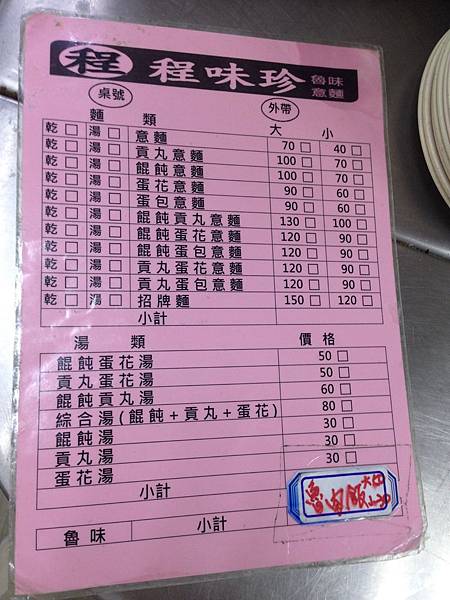 程 程味珍 魯味意麵
桌號 外帶
麵類 大 小
乾□ 湯□ 意麵 70□ 40□
乾□ 湯□ 貢丸意麵 100□ 70□
乾□ 湯□ 餛飩意麵 100□ 70□
乾□ 湯□ 蛋花意麵 90□ 60□
乾□ 湯□ 蛋包意麵 90□ 60□
乾□ 湯□ 餛飩貢丸意麵 130□ 100□
乾□ 湯□ 餛飩蛋花意麵 120□ 90□
乾□ 湯□ 餛飩蛋包意麵 120□ 90□
乾□ 湯□ 貢丸蛋花意麵 120□ 90□
乾□ 湯□ 貢丸蛋包意麵 120□ 90□
乾□ 湯□ 招牌麵 150□ 120□
小計
湯類 價格
餛飩蛋花湯 50□
貢丸蛋花湯 50□
餛飩貢丸湯 60□
綜合湯(餛飩+貢丸+蛋花) 80□
餛飩湯 30□
貢丸湯 30□
蛋花湯 30□
小計
魯味 小計
魯肉飯 大 小30